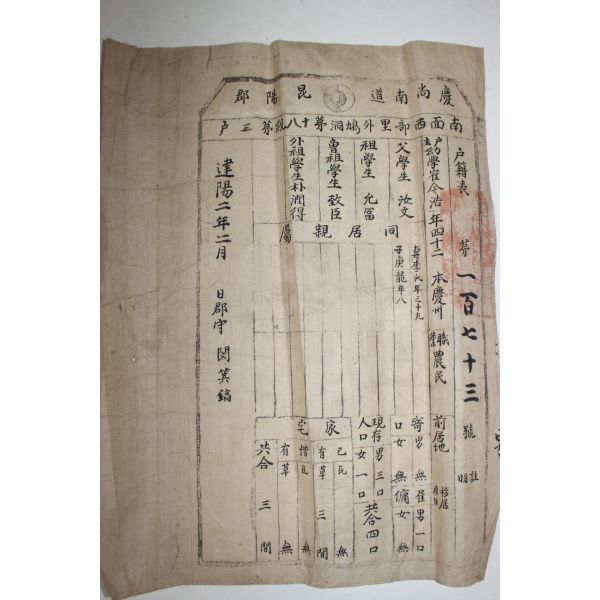 慶尚南道昆陽郡
南面西部里外鳩洞第十八統第三戶
戶籍表 第一百七十三號
戶主 幼學崔令浩 年四十二 本慶州 職業 農民 前居地 移居 月日
父學生 汝文
祖學生 允冨
曾祖學生 致臣
外祖學生朴潤得
同居親屬
妻李氏年三十九
子庚龍年八
寄口 男無 女無
雇傭 男一口 女無
現存人口 男三口 女一口 共合四口
家宅
己有 瓦無 草三間
借有 瓦無 草無
共合 三間
建陽二年二月 日郡守 閔箕鎬